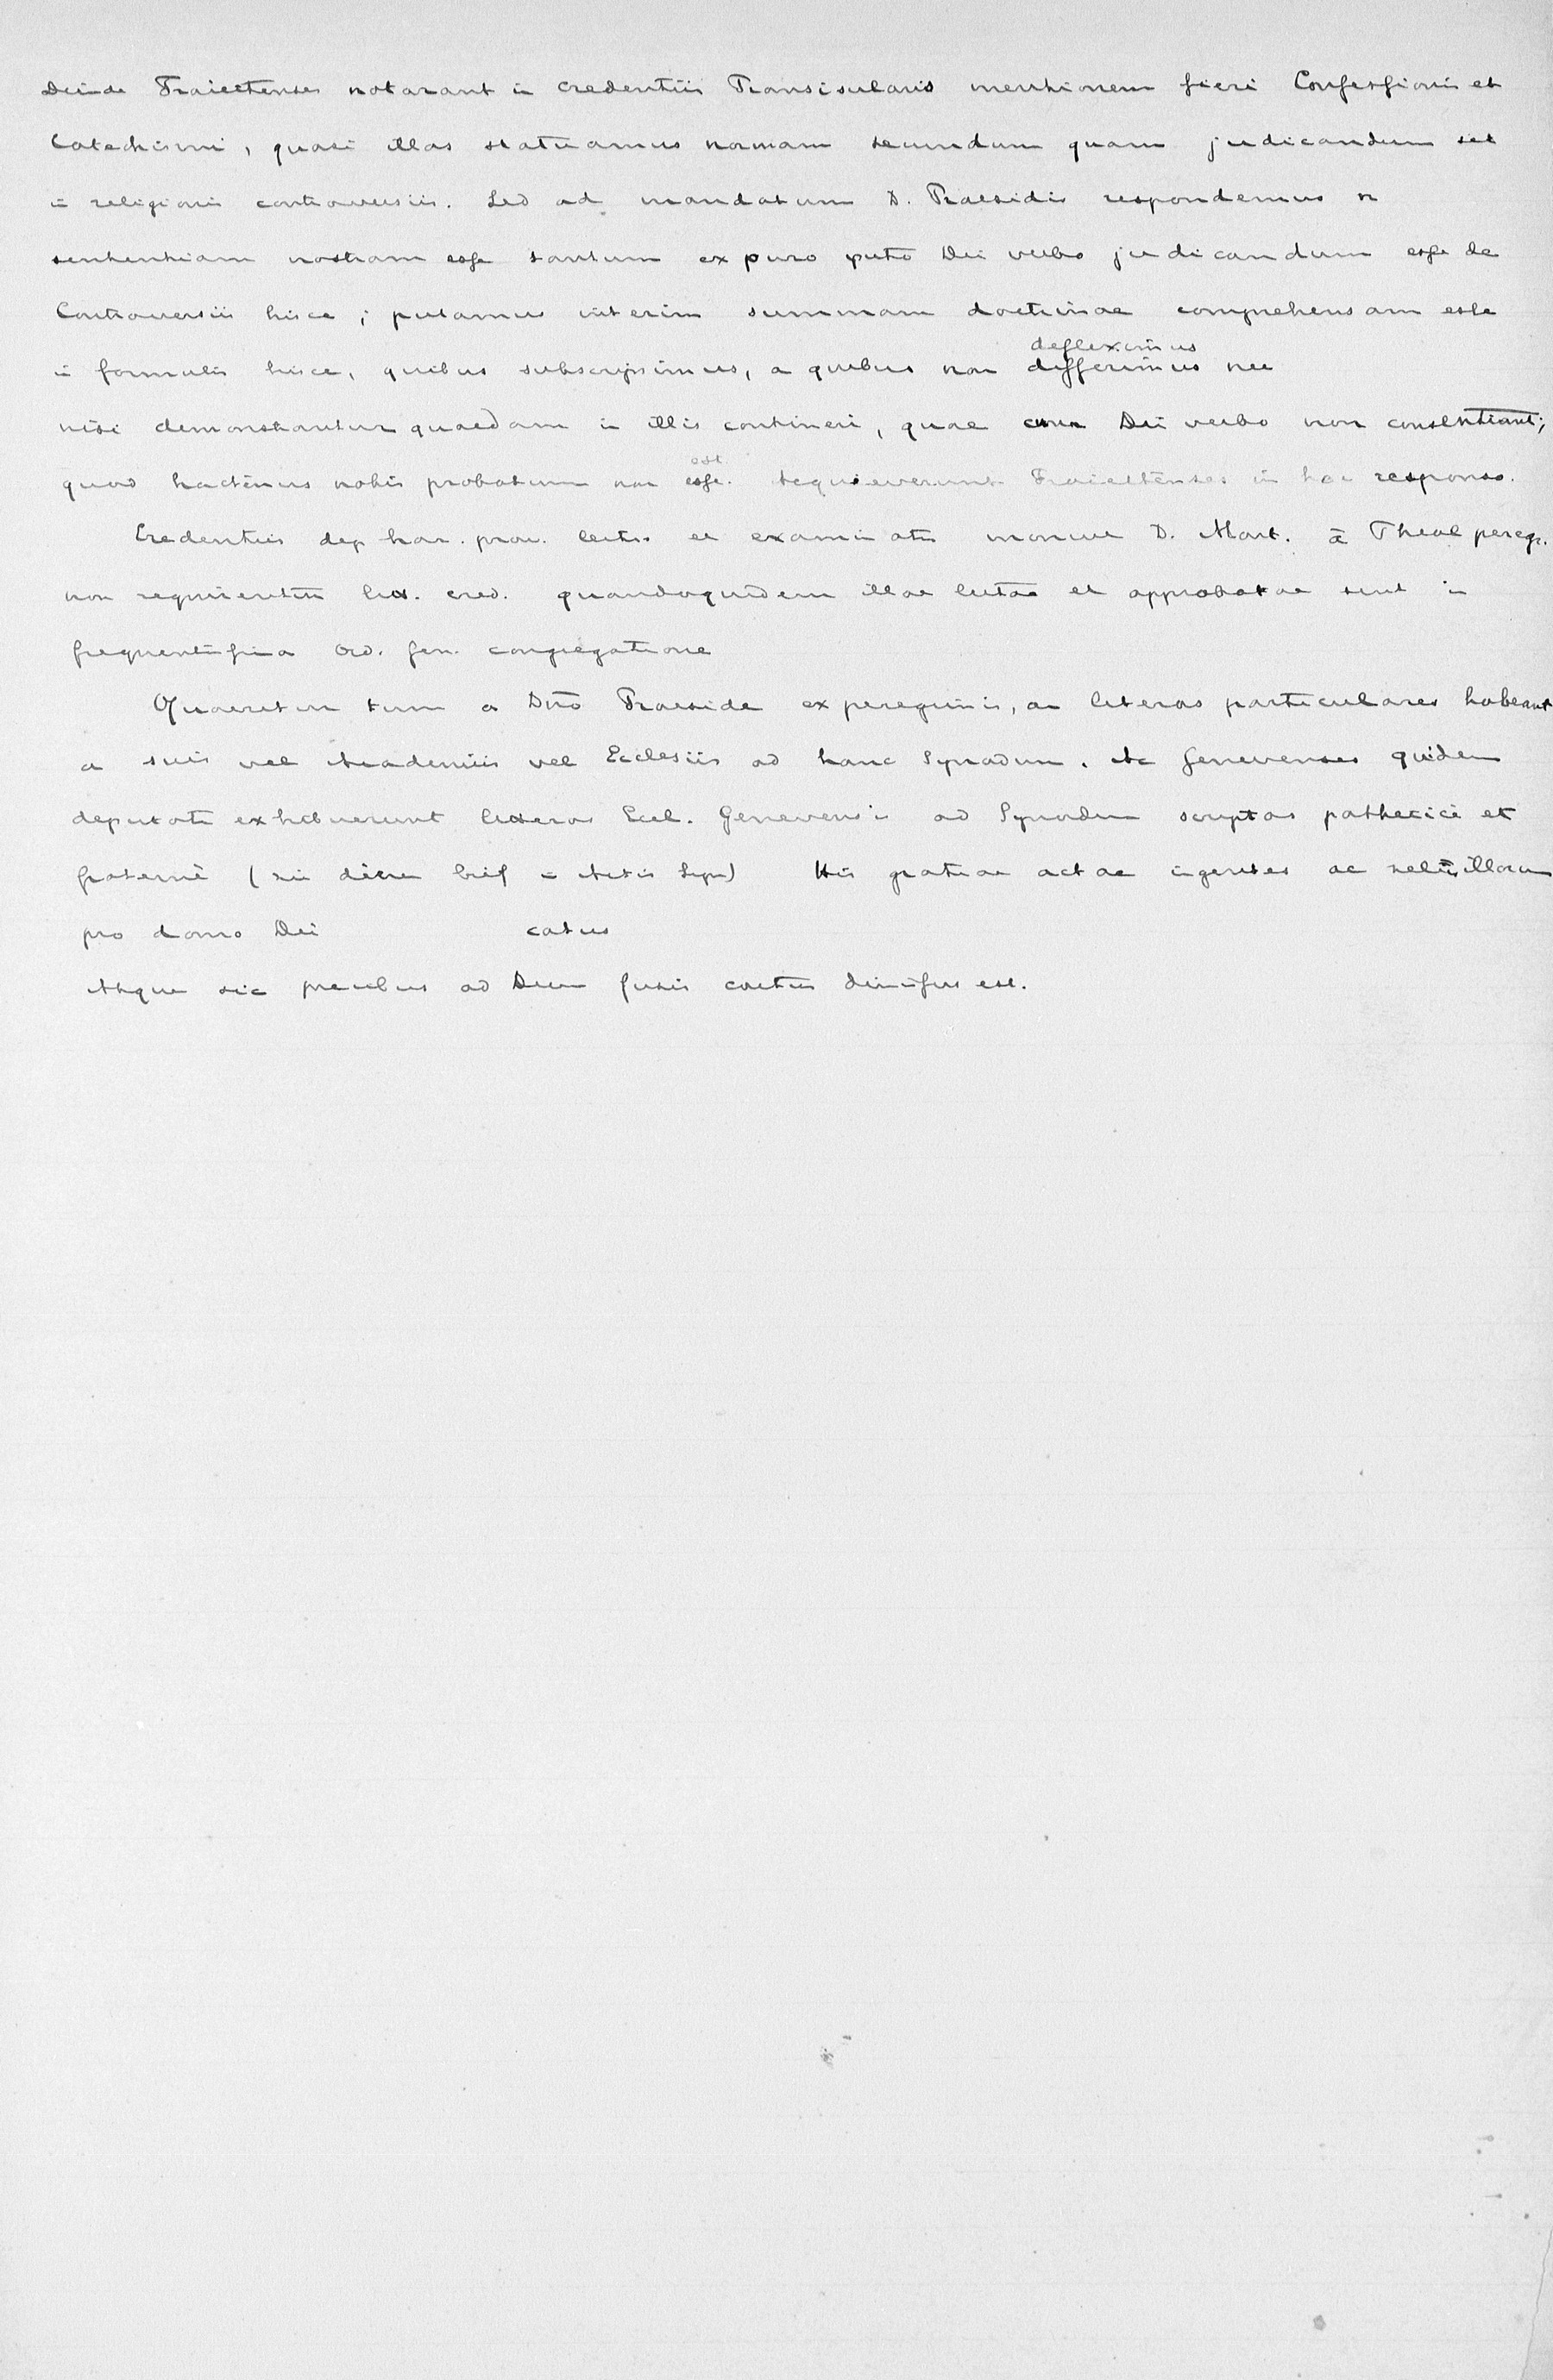 Deinde Traiectenses notarant in credentiis Transisulanis mentionem fieri Confessionis et
Catechismi, quasi illas statuamus normam secundum quam judicandum sit
in religionis controversiis. Sed ad mandatum D. Praesidis respondemus
sententiam nostram esse tantum ex puro puto Dei verbo judicandum esse de
Controversiis hisce; putamus interim summam doctrinae comprehensam esse
deflexīmus
in formulis hisce, quibus subscripsimus, a quibus non differīmus nec
nisi demonstrantur quaedam in illis contineri, quae cum Dei verbo non consentiant;
est
quod hactenus nobis probatum non esse. Acquieverunt Traiectenses in hoc responso.
Credentiis dep har. prov. lectis et examinatis monuit D. Mart. à Theol peregr.
non requirentur lit. cred. quandoquidem illae lectae et approbatae sint in
frequentissima Ord. Gen. congregatione
Quaeretur tum a Dno Praeside ex peregrinis, an literas particulares habeant
a suis vel Academiis vel Ecclesiis ad hanc Synodum. Ac Genevenses quidem
deputati exhibuerunt litteras Eccl. Genevensis ad Synodum scriptas patheticè et
fraternè (zie dezen brief in Actis Syn) His gratiae actae ingentes ac zelus illorum
pro domo Dei catus
Atque sic precibus ad Deum fusis coetus dimissus est.